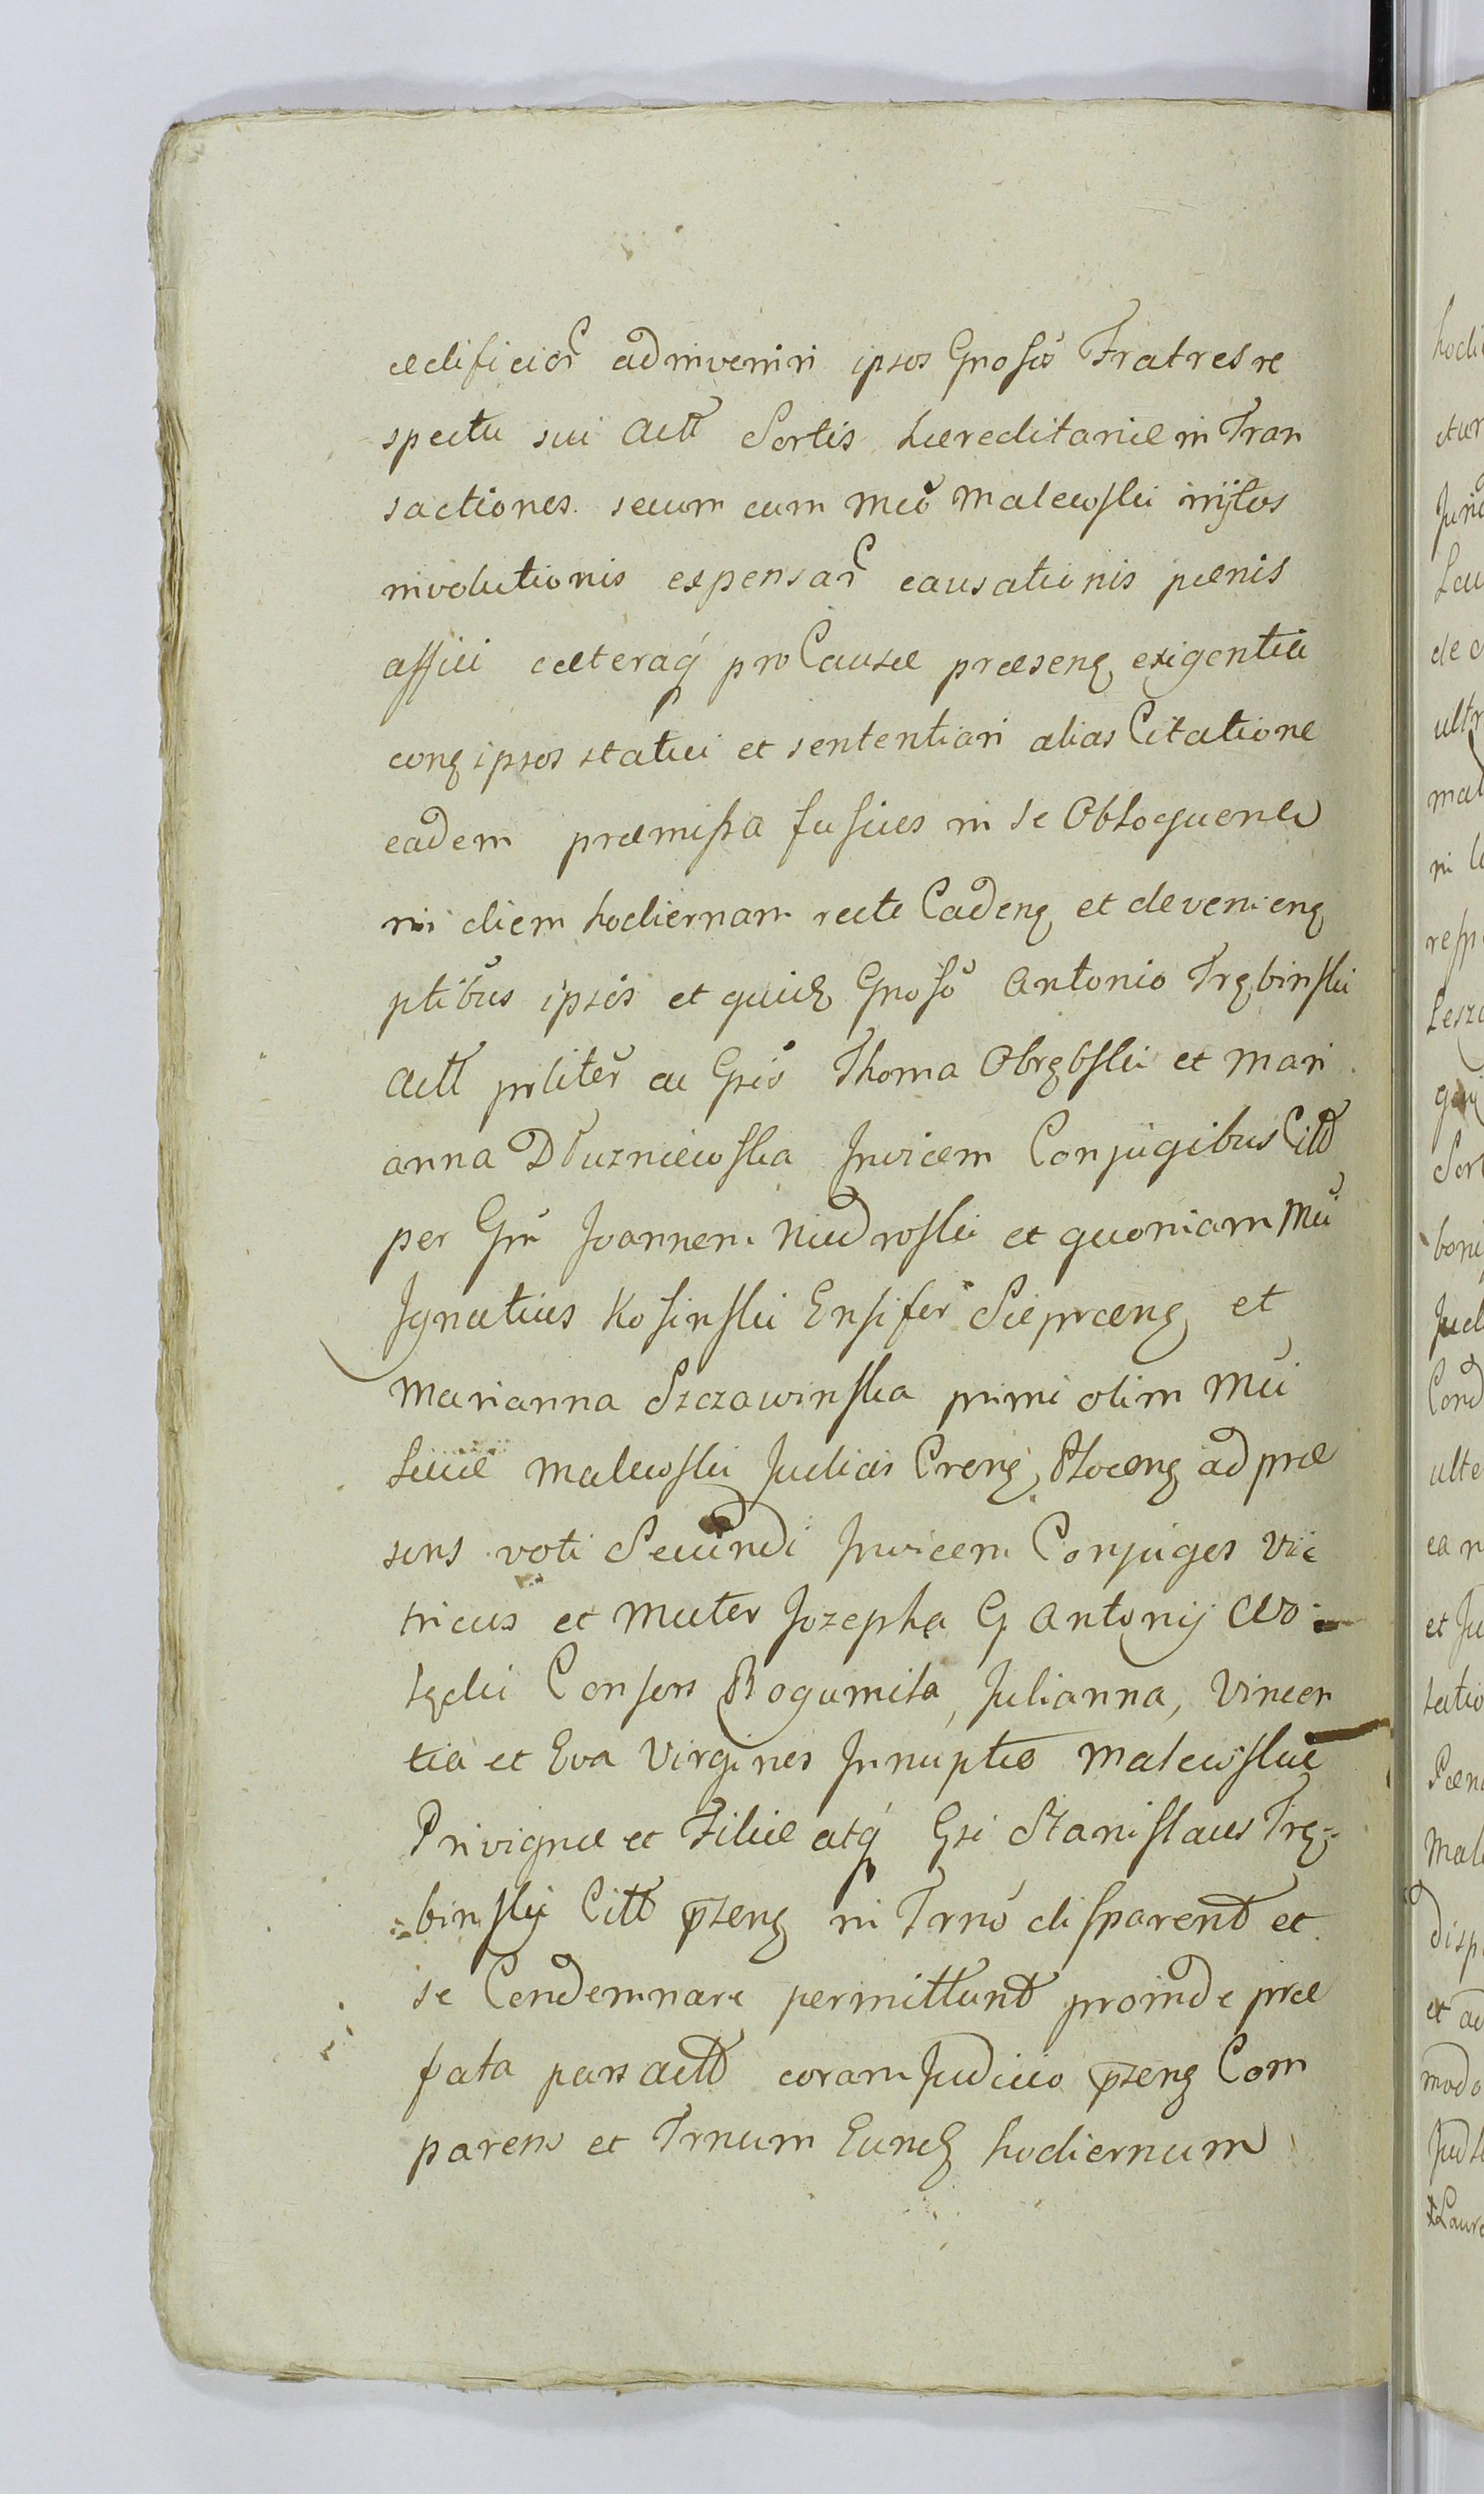 ædificior adinveniri ipsos Gnosos Fratres re
spectu sui Actt Sortis hæreditariæ in Tran
sactiones secum cum Mco Malewski initas
involutionis expensar causationis pænis
affici cæteraq pro Causæ præsenq exigentia
conq ipsos statui et sententiari alias Citatione
eadem præmissa fusius in se Obloquene
in diem hodiernam recte Cadenq et devenienq
ptibus ipsis et quidq Gnoso Antonio Trębinski
Actt prliter ac Gsis Thoma Obrębski et Mari
anna Dłuzniewska Invicem Conjugibus Citt
per Gm Joannem Niedroski et quoniam Mci
Ignatius Kosinski Ensifer Sieprcenq et
Marianna Szczawinska primi olim Mci
Lucæ Malewski Judicis Crenq Plocenq ad præ
sens voti Secundi Invicem Conjuges Vi
tricus et Mater Jozepha G Antonij Wo
łędki Consors Bogumiła, Julianna, Vincen
tia et Eva Virgines Innuptæ Malewskie
Privignæ et Filiæ atq Gsi Stanislaus Trę
binskij Citt pszenq in Trno disparent et
se Condemnare permittunt proinde præ
fata pars Actt coram Judicio pszenq Com
parens et Trnum Eundq hodiernum